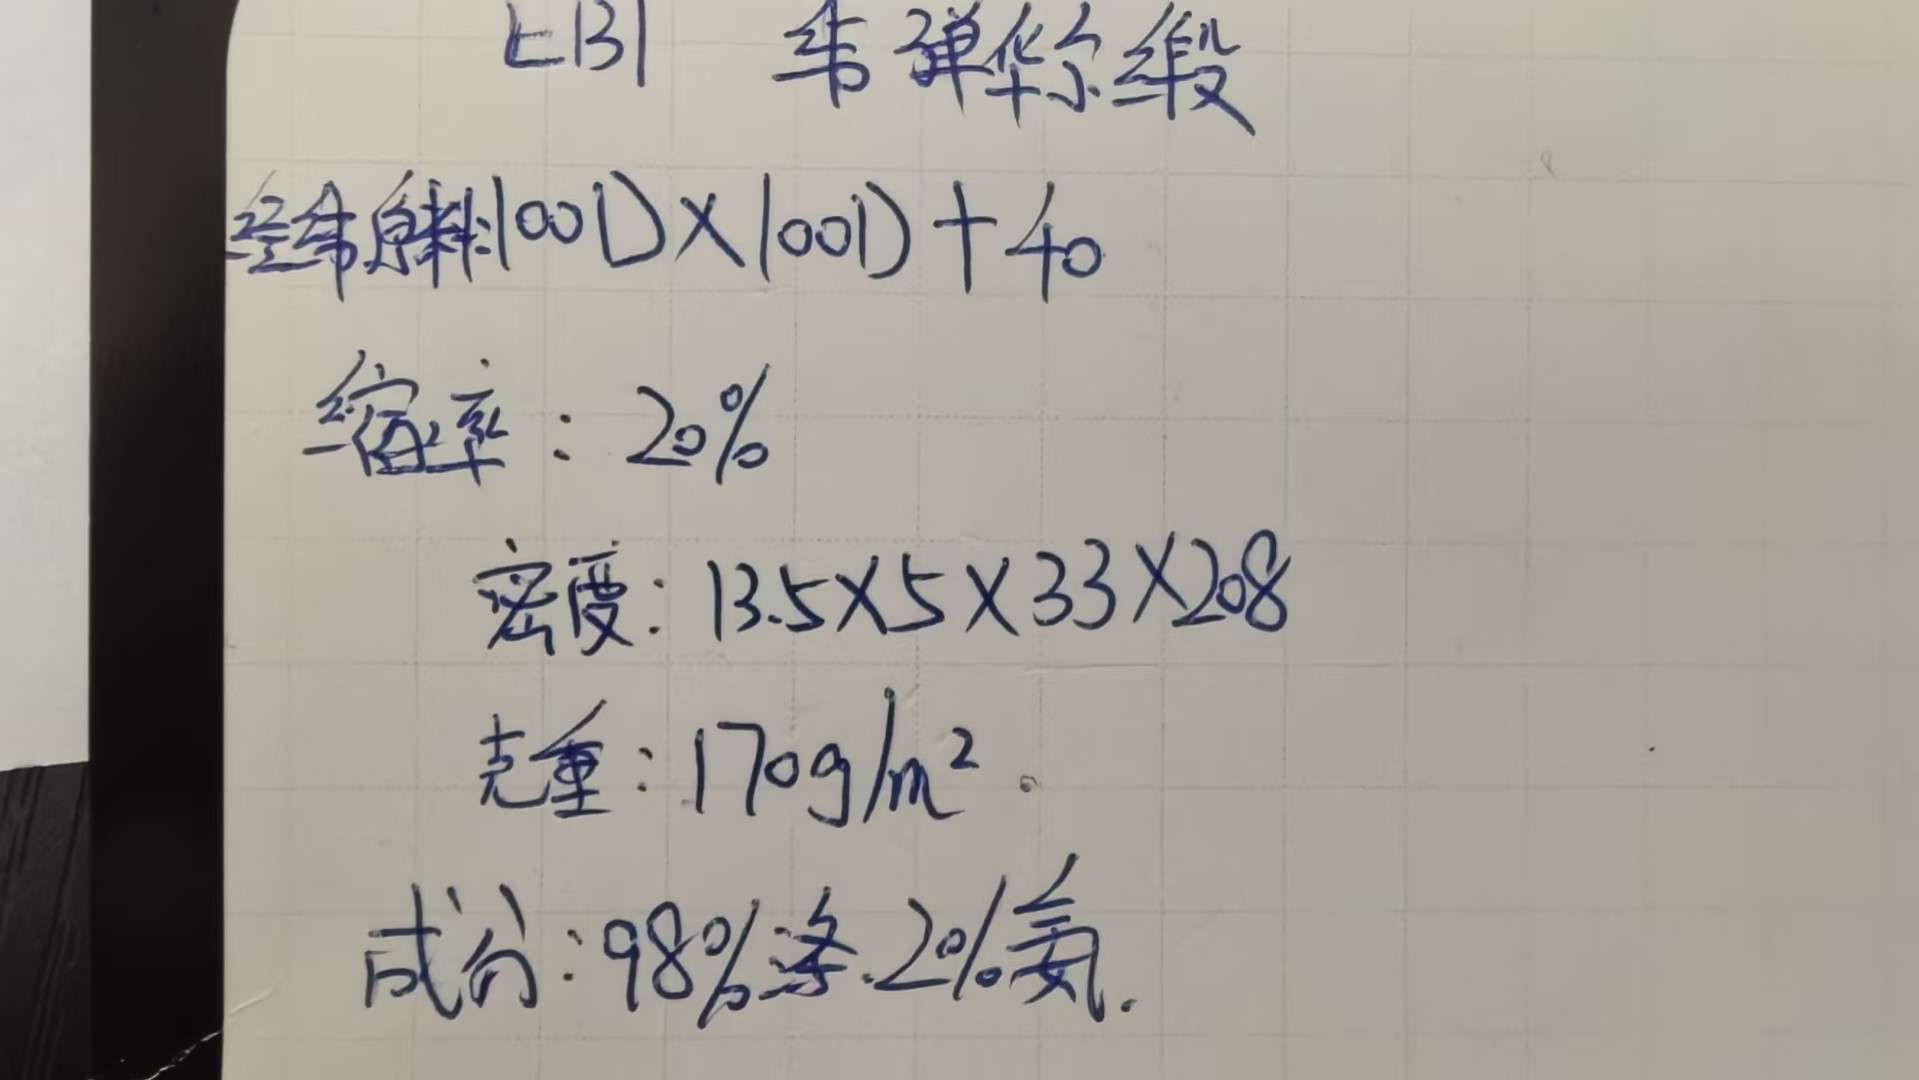 EB1 纬弹华尔缎
经纬原料:100D×100D+40
缩率:20%
密度:13.5×5×33×208
克重:170g/m²。
成分:98%涤.2%氨.